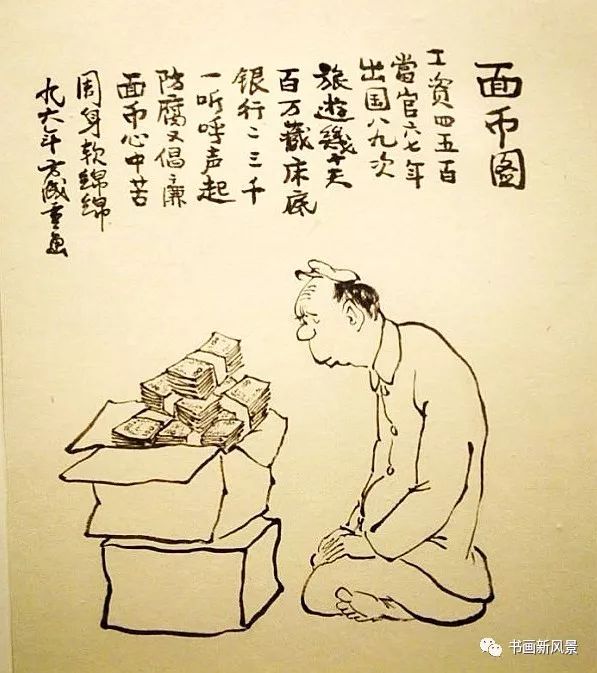 面币图
工资四五百
當官六七年
出国八九次
旅遊幾十天
百万藏床底
银行二三千
一听呼声起
防腐又倡廉
面币心中苦
周身软绵绵
九六年方成重画
书画新风景